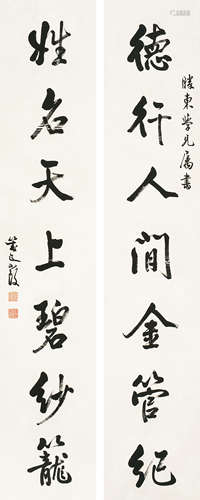 德行人間金管紀
勝東學兄屬書
姓名天上碧紗籠